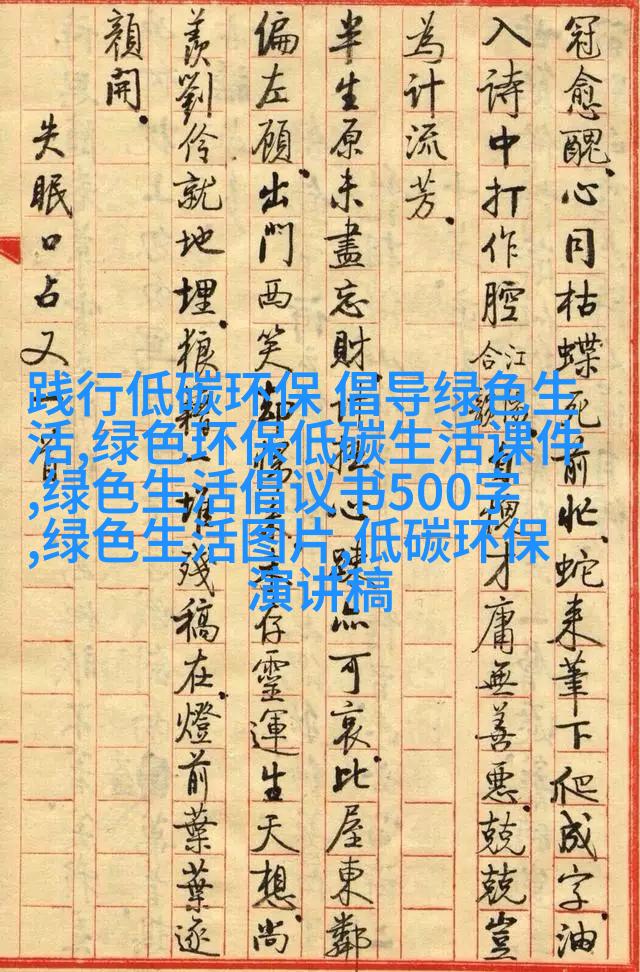 冠愈醜。心同枯蝶死前忙。蛇来筆下爬成字。油
入詩中打作腔。江合自愧才庸無善惡。兢兢豈
為計流芳。
半生原未盡忘財。計拙心亦可哀。比屋東鄰
偏左顧。出門西笑存靈運生天想。尚
羨劉伶就地埋。狼藉一堆殘稿在。燈前葉葉逐
顏開。
失眠口占又一首
践行低碳环保,倡导绿色生
活,绿色环保低碳生活课件
,绿色生活倡议书500字
,绿色生活图片,低碳环保
演讲稿